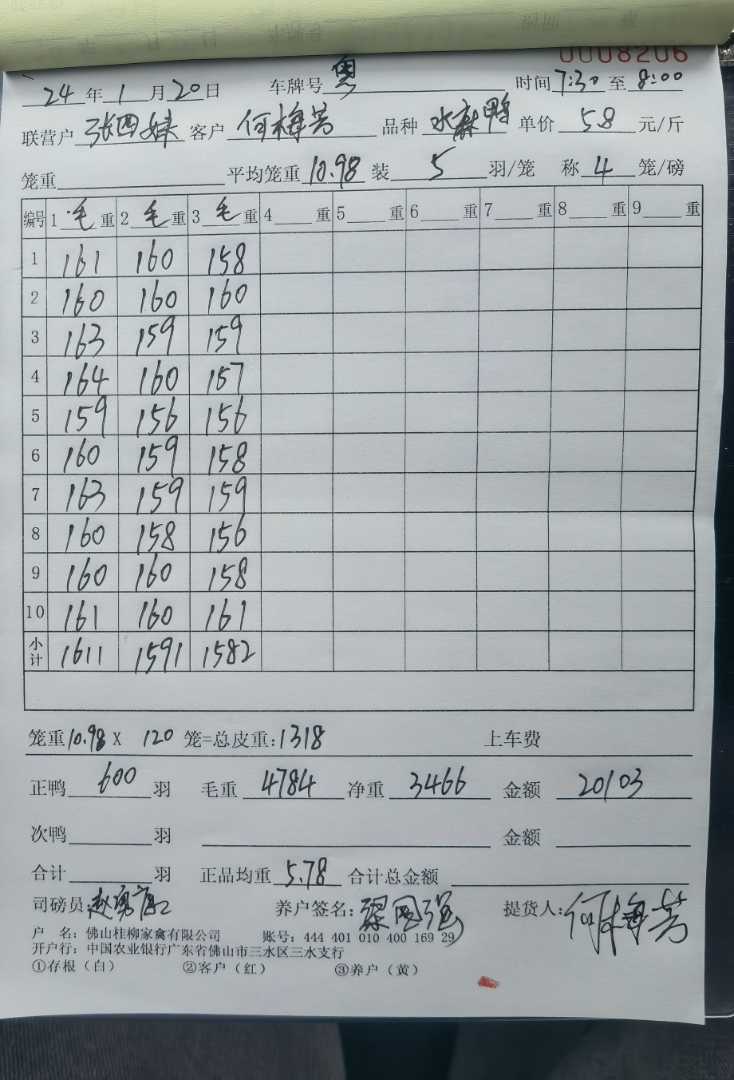 0008206
24 年 1 月 20 日 车牌号 粤 时间 7:30 至 8:00
联营户 张四妹 客户 何梅芳 品种 水麻鸭 单价 5.8 元/斤
笼重 平均笼重 10.98 装 5 羽/笼 称 4 笼/磅
编号 1 毛 重 2 毛 重 3 毛 重 4 重 5 重 6 重 7 重 8 重 9 重
1 161 160 158
2 160 160 160
3 163 159 159
4 164 160 157
5 159 156 156
6 160 159 158
7 163 159 159
8 160 158 156
9 160 160 158
10 161 160 161
小计 1611 1591 1582
笼重 10.98 X 120 笼=总皮重: 1318 上车费
正鸭 600 羽 毛重 4784 净重 3466 金额 20103
次鸭 羽 金额
合计 羽 正品均重 5.78 合计总金额
司磅员: 赵勇 养户签名: 梁国强 提货人: 何梅芳
户 名: 佛山桂柳家禽有限公司 账号: 444 401 010 400 169 29
开户行: 中国农业银行广东省佛山市三水区三水支行
①存根（白） ②客户（红） ③养户（黄）